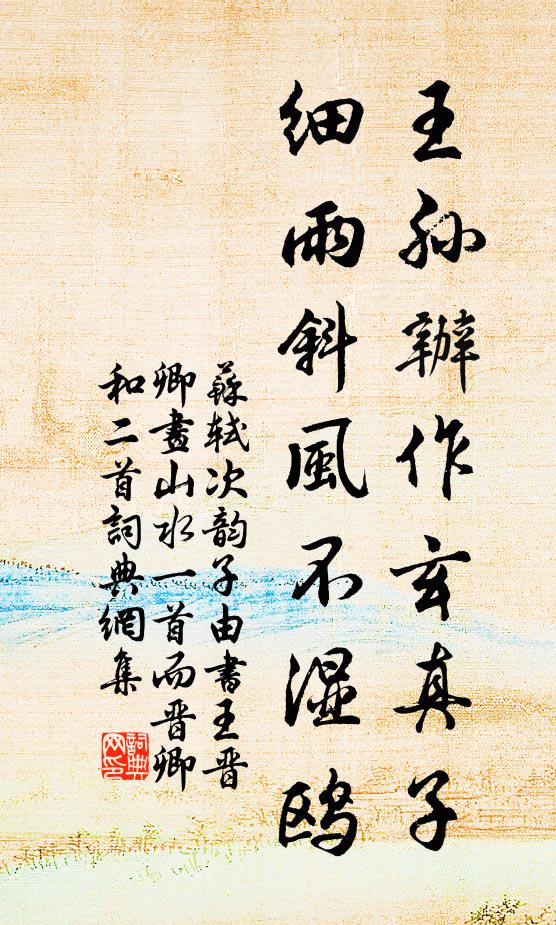 王孙辦作玄真子
细雨斜風不濕鸥
蘇轼次韵子由書王晋
卿畫山水一首而晋卿
和二首詞典網集
詞典
网印